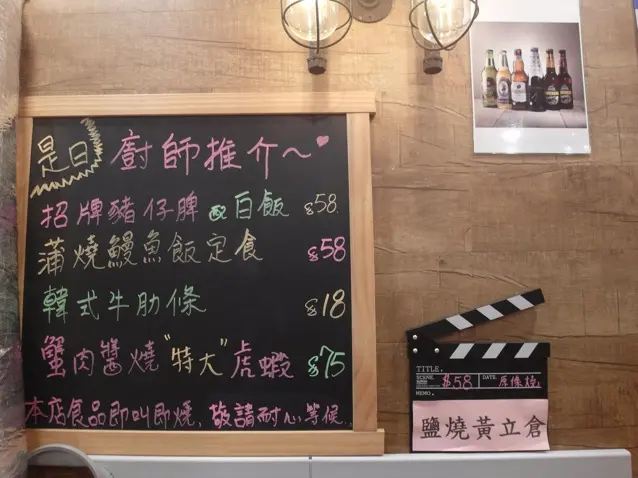 是日 廚師推介～
招牌豬仔脾配白飯 $58.
蒲燒鰻魚飯定食 $58
韓式牛肋條 $18
蟹肉醬燒"特大"虎蝦 $75
本店食品即叫即燒，敬請耐心等候..
TITLE.
SCENE. $58 DATE. 原條燒
MEMO.
鹽燒黃立倉